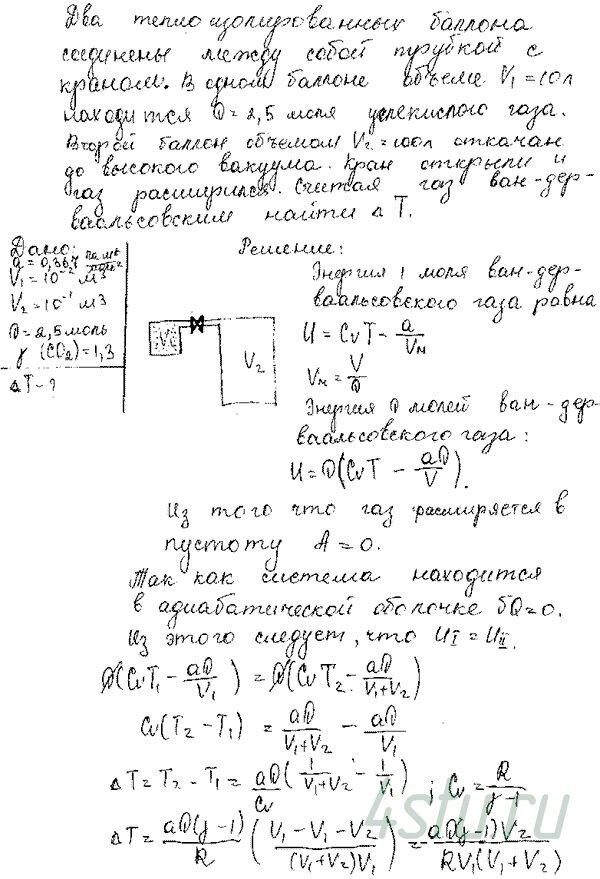 Два теплоизолированных баллона
соединены между собой трубкой с
краном. В одном баллоне объеме V₁=10л
находится ν=2,5 моля углекислого газа.
Второй баллон объемом V₂=100л откачан
до высокого вакуума. Кран открыли и
газ расширился. Считая газ ван-дер-
ваальсовским найти ΔT.
Дано:
a=0,367 Па·м⁶/моль²
V₁=10⁻² м³
V₂=10⁻¹ м³
ν=2,5 моль
γ (CO₂)=1,3
ΔT-?
Решение:
V₁
V₂
Энергия 1 моля ван-дер-
ваальсовского газа равна
U = CvT - a/Vм
Vм = V/ν
Энергия ν молей ван-дер-
ваальсовского газа:
U=ν(CvT - aν/V).
Из того что газ расширяется в
пустоту A=0.
Так как система находится
в адиабатической оболочке δQ=0.
Из этого следует, что U_I = U_II.
ν(CvT₁ - aν/V₁) = ν(CvT₂ - aν/(V₁+V₂))
Cv(T₂-T₁) = aν/(V₁+V₂) - aν/V₁
ΔT = T₂-T₁ = aν/Cv (1/(V₁+V₂) - 1/V₁) ; Cv = R/(γ-1)
ΔT = aν(γ-1)/R ((V₁-V₁-V₂)/((V₁+V₂)V₁)) = -aν(γ-1)V₂/(RV₁(V₁+V₂))
4stu.ru